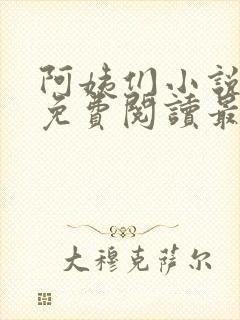 阿姨们小説
免費閱讀最
大穆克萨尔